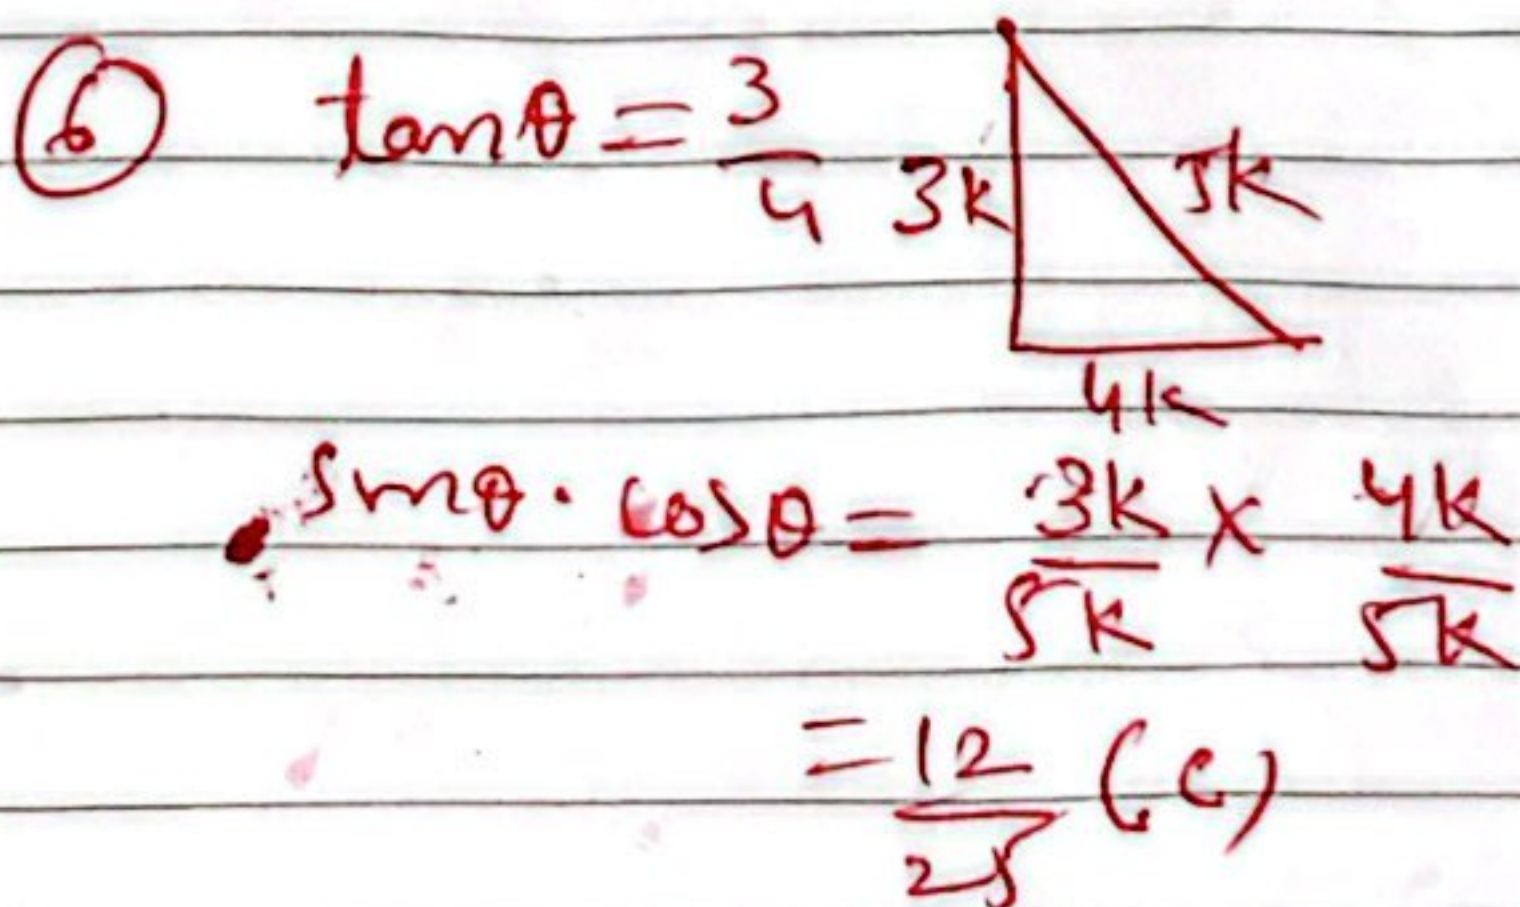 ⑥ tanθ = 3/4 3k 5k
4k
sinθ · cosθ = 3k/5k × 4k/5k
= 12/25 (c)